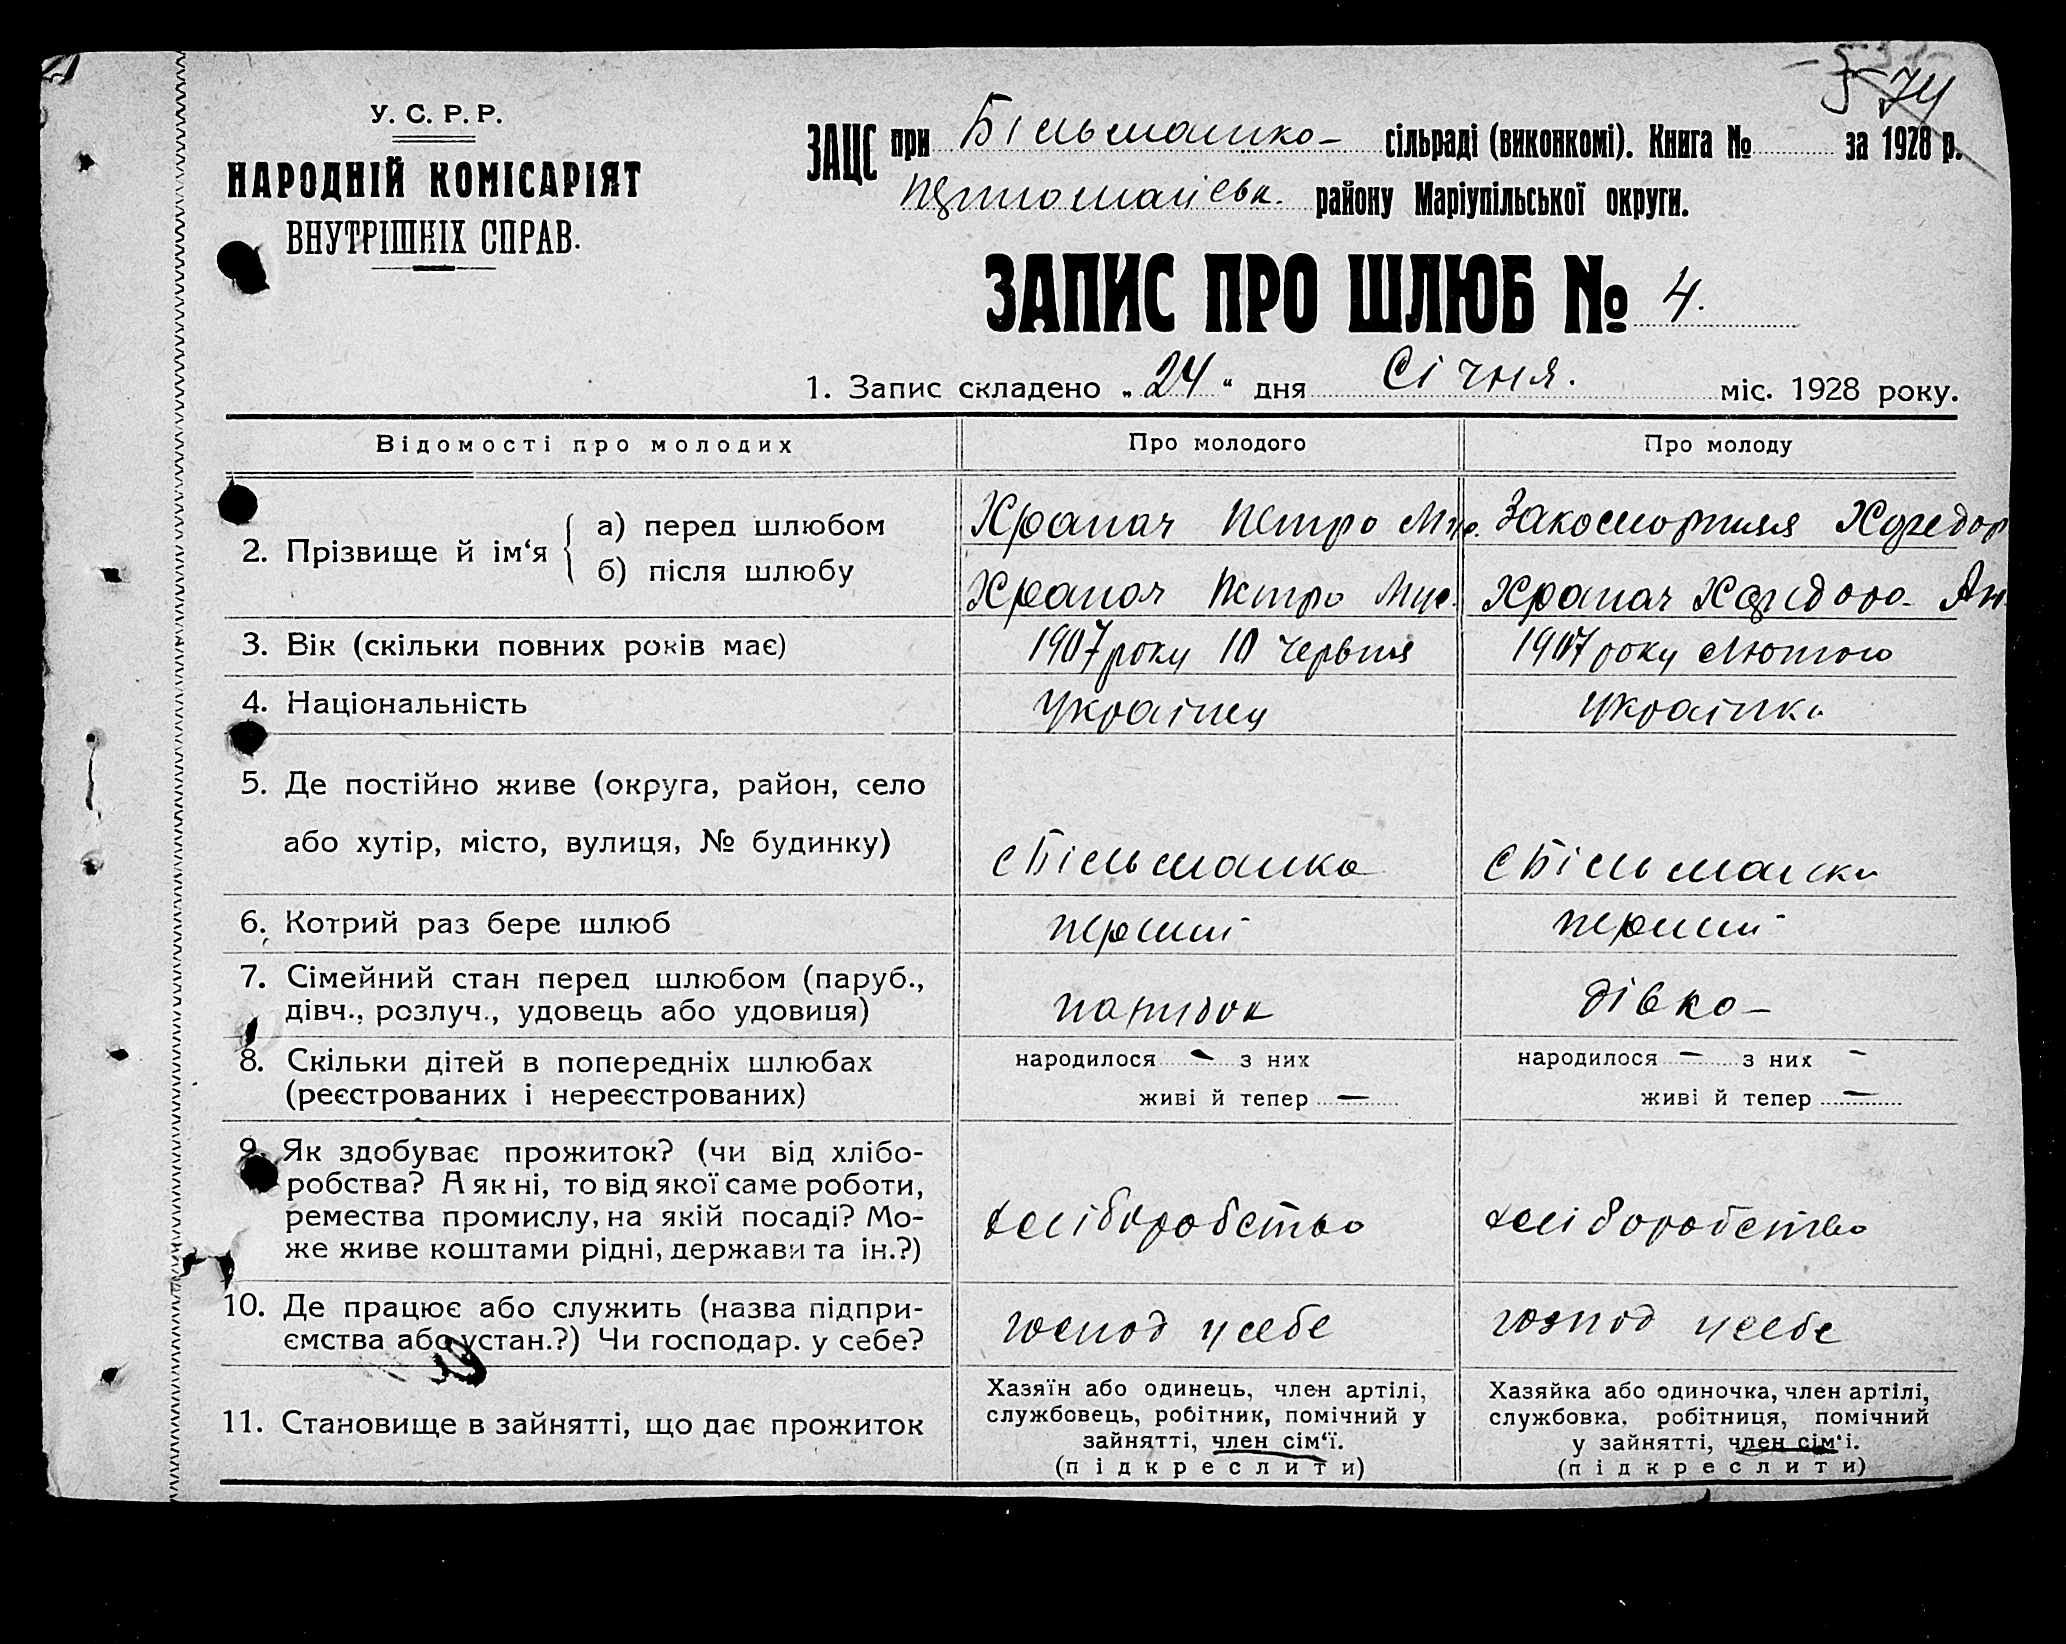 74
У. С. Р. Р.
НАРОДНІЙ КОМІСАРІЯТ
ВНУТРІШНІХ СПРАВ.
ЗАЦС при Більманко- сільраді (виконкомі). Книга № за 1928 р.
району Маріупільської округи.
ЗАПИС ПРО ШЛЮБ № 4.
1. Запис складено „24“ дня Січня. міс. 1928 року.
Відомості про молодих
Про молодого
Про молоду
2. Прізвище й ім‘я
а) перед шлюбом
Храпач Петро
б) після шлюбу
Храпач Петро
Храпач
3. Вік (скільки повних років має)
1907 року 10 червня
1907 року Лютого
4. Національність
Українец
Українка
5. Де постійно живе (округа, район, село
або хутір, місто, вулиця, № будинку)
с Більманка
с Більманка
6. Котрий раз бере шлюб
перший
перший
7. Сімейний стан перед шлюбом (паруб.,
дівч., розлуч., удовець або удовиця)
парубок
дівка
8. Скільки дітей в попередніх шлюбах
(реєстрованих і нереєстрованих)
народилося – з них
живі й тепер –
народилося – з них –
живі й тепер –
9. Як здобуває прожиток? (чи від хлібо-
робства? А як ні, то від якої саме роботи,
ремества промислу, на якій посаді? Мо-
же живе коштами рідні, держави та ін.?)
хліборобство
хліборобство
10. Де працює або служить (назва підпри-
ємства або устан.?) Чи господар. у себе?
господ у себе
господ у себе
11. Становище в зайнятті, що дає прожиток
Хазяїн або одинець, член артілі,
службовець, робітник, помічний у
зайнятті, член сім‘ї.
(підкреслити)
Хазяйка або одиночка, член артілі,
службовка, робітниця, помічний
у зайнятті, член сім‘і.
(підкреслити)